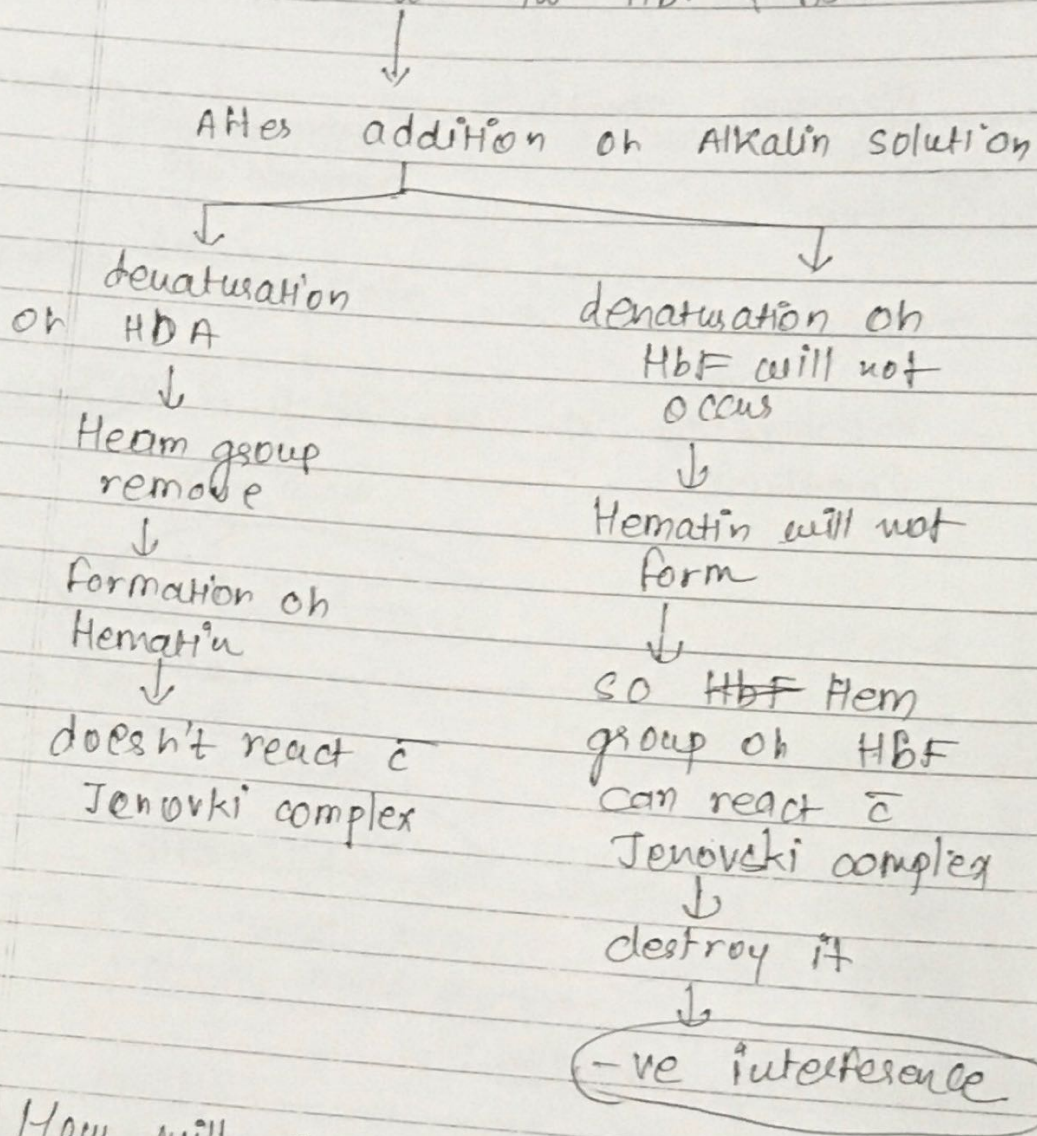 After addition of Alkalin solution
denaturation
of HDA
Heam group
remove
formation of
Hematin
doesn't react c̄
Jenovki complex
denaturation of
HbF will not
occur
Hematin will not
form
so HbF Hem
group of HBF
can react c̄
Jenovski complex
destroy it
-ve interference
How will